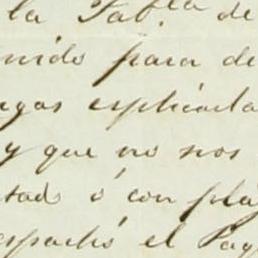 la Tabla de
nido para de
egas esplicacla
y que no nos
stad ó con plá
espachó el Pag